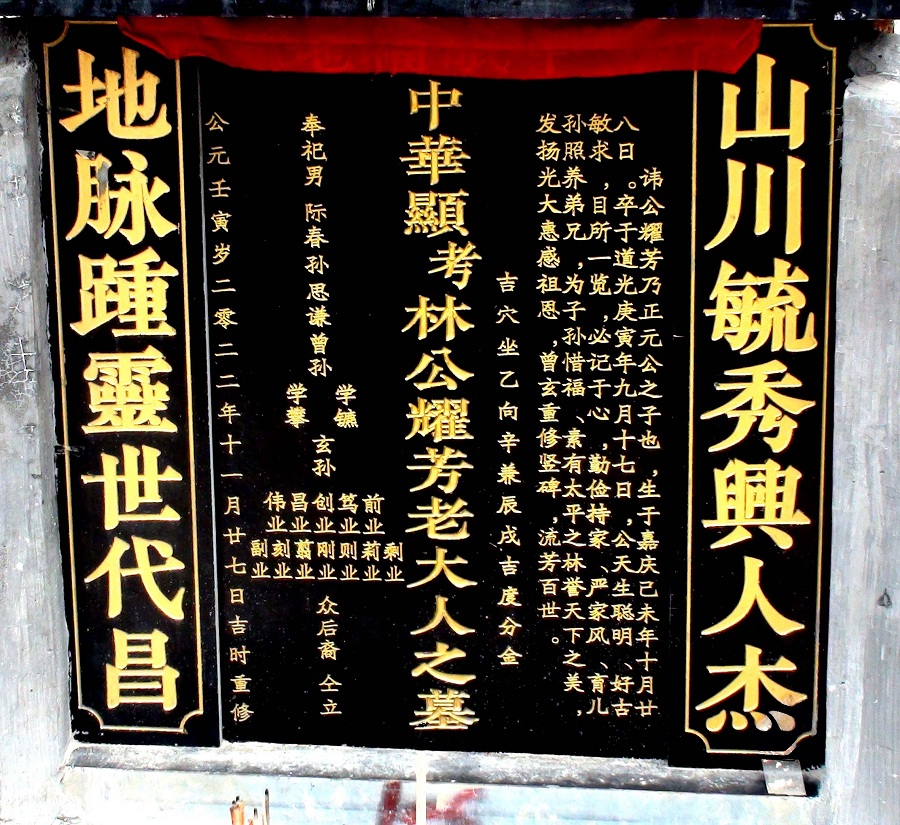 山川毓秀興人杰
讳公耀芳乃正元公之子也，生于嘉庆己未年十月廿
八日。卒于道光庚寅年九月十七日，公天生聪明、好古
敏求，目所一览，必记于心，勤俭持家、严家风、育儿
孙照养弟兄，为子孙惜福、素有太平之林誉天下之美，
发扬光大惠感祖恩，曾玄重修竖碑，流芳百世。
吉穴坐乙向辛兼辰戌吉度分金
中華顯考林公耀芳老大人之墓
奉祀男 际春孙思谦曾孙
学镳
学攀
玄孙
前业 笃业 创业 昌业 伟业
剩业 莉业 则业 刚业 翦业 刻业 副业
众后裔 仝立
公元壬寅岁二零二二年十一月廿七日吉时重修
地脉踵靈世代昌